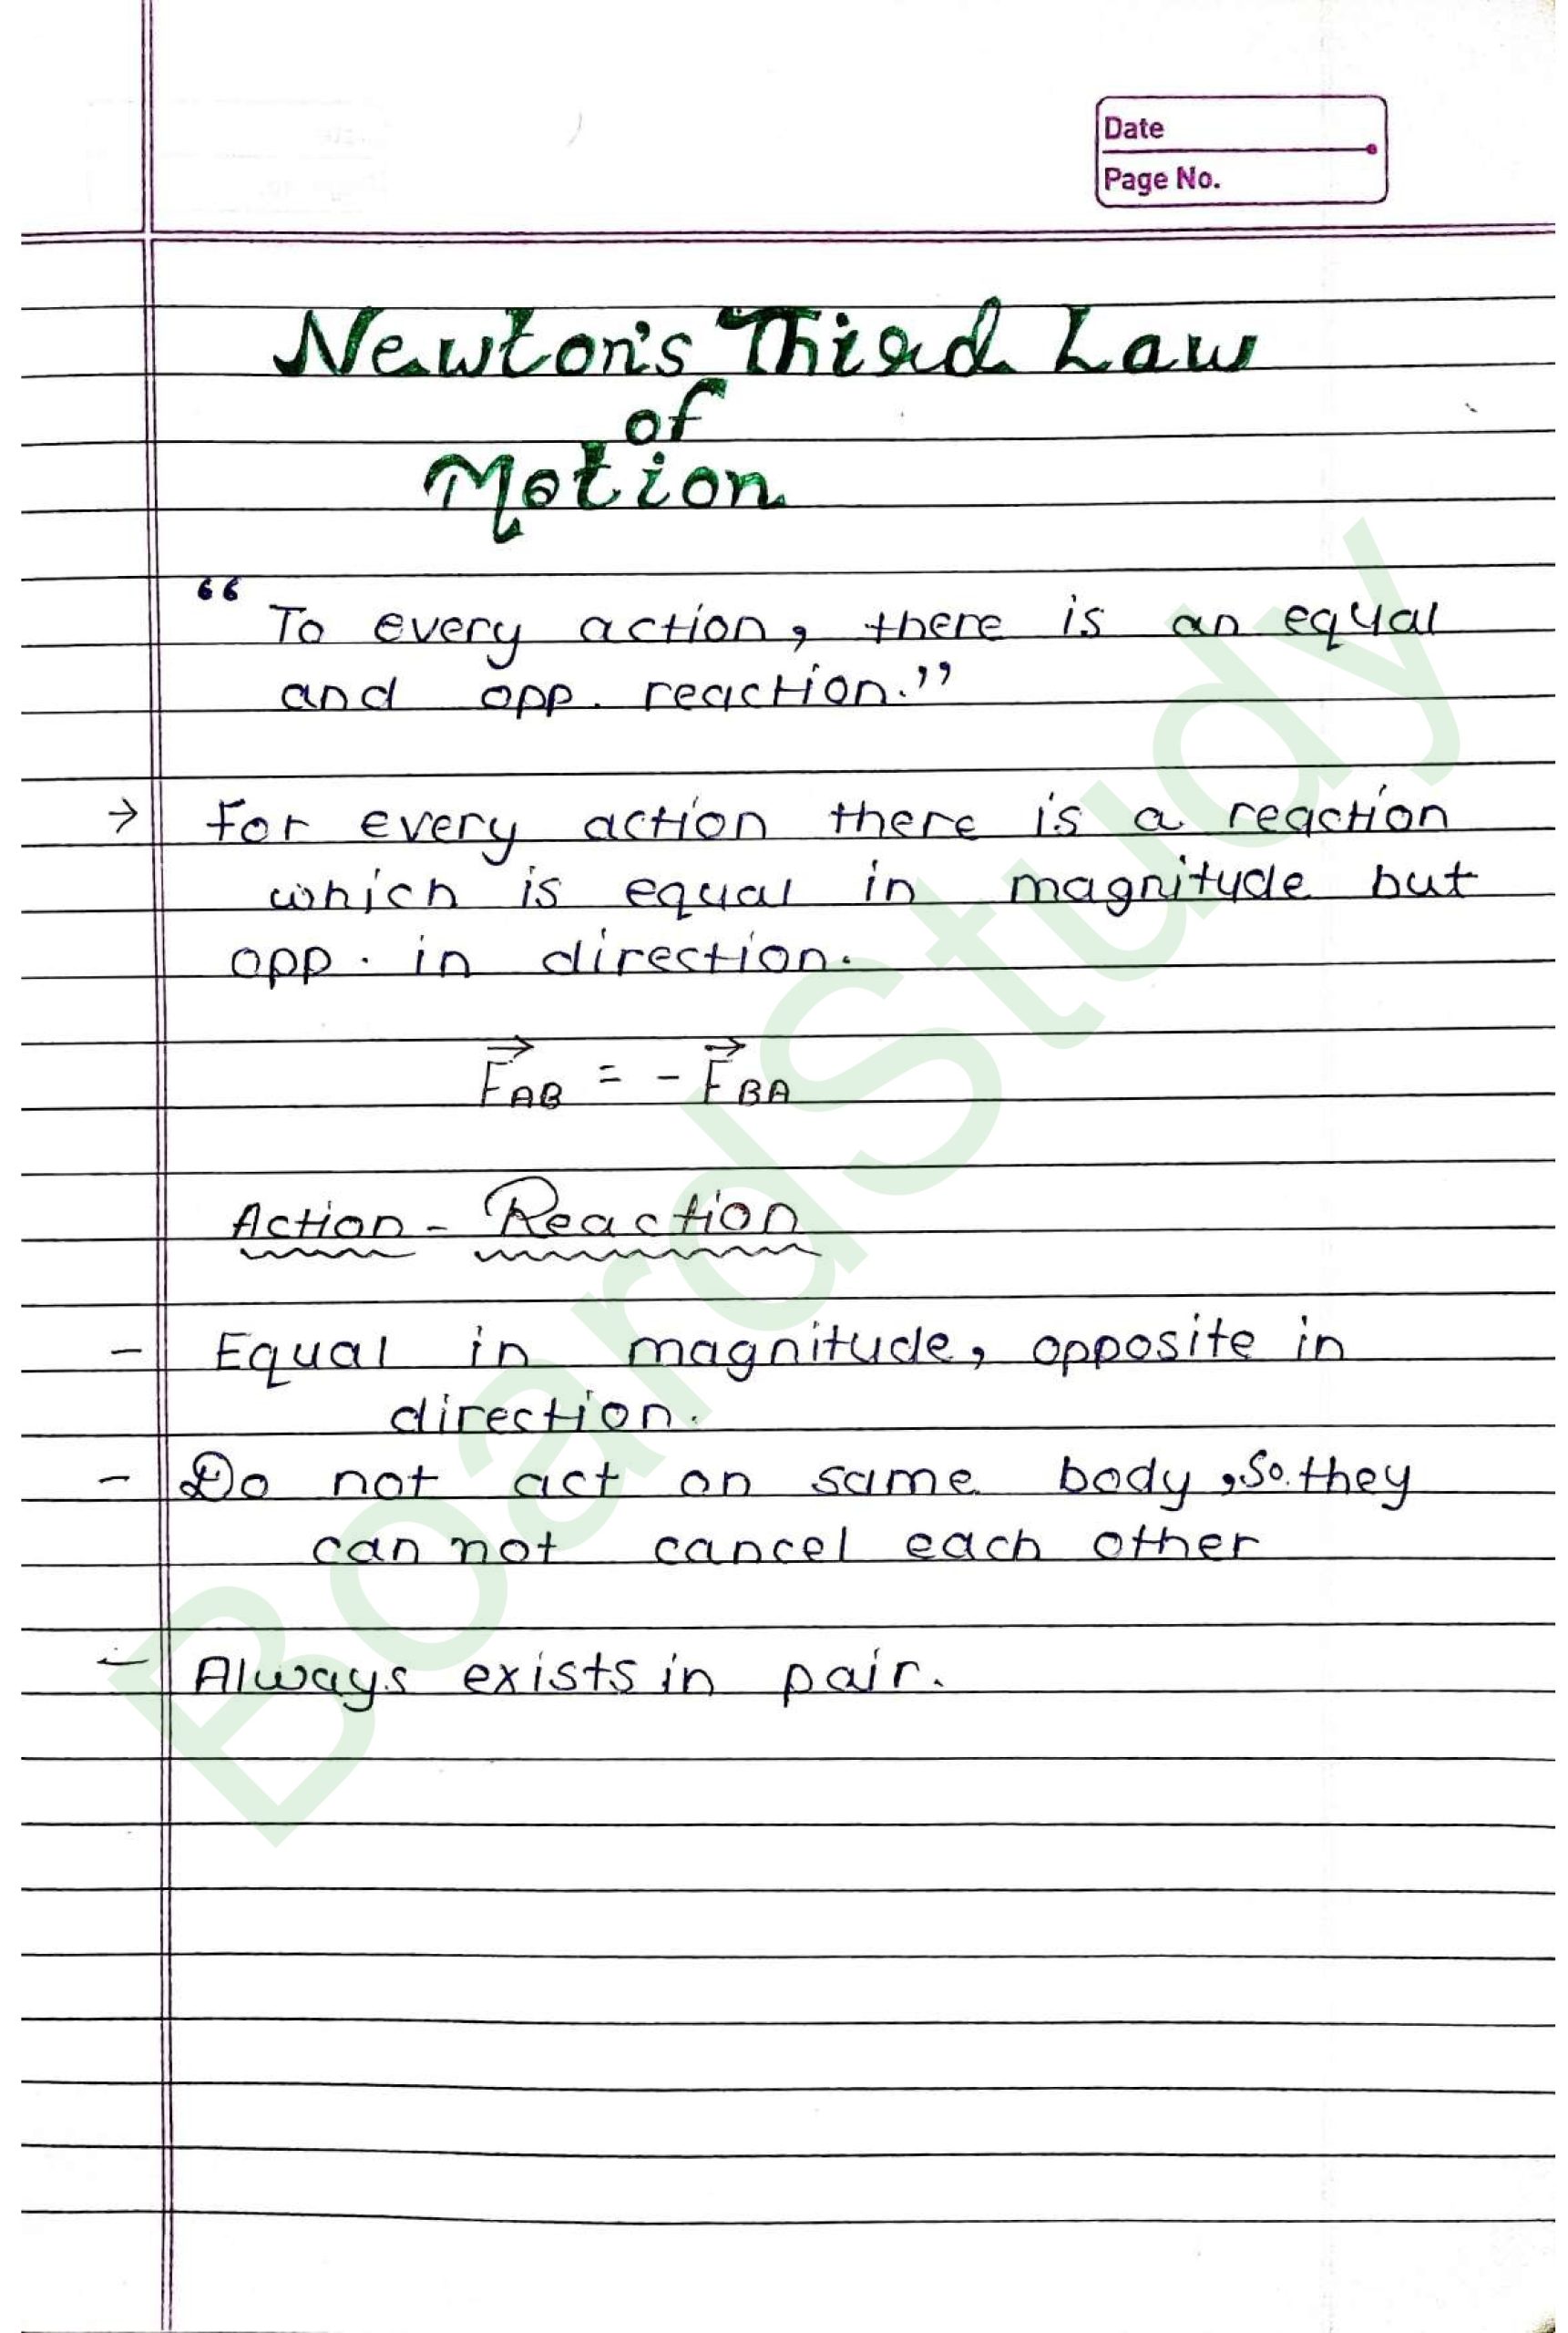 Date
Page No.
Newton's Third Law
of
Motion
“ To every action, there is an equal
and opp. reaction.”
→ For every action there is a reaction
which is equal in magnitude but
opp. in direction.
F⃗AB = - F⃗BA
Action - Reaction
- Equal in magnitude, opposite in
direction.
- Do not act on same body, so they
can not cancel each other
- Always exists in pair.
BoardStudy